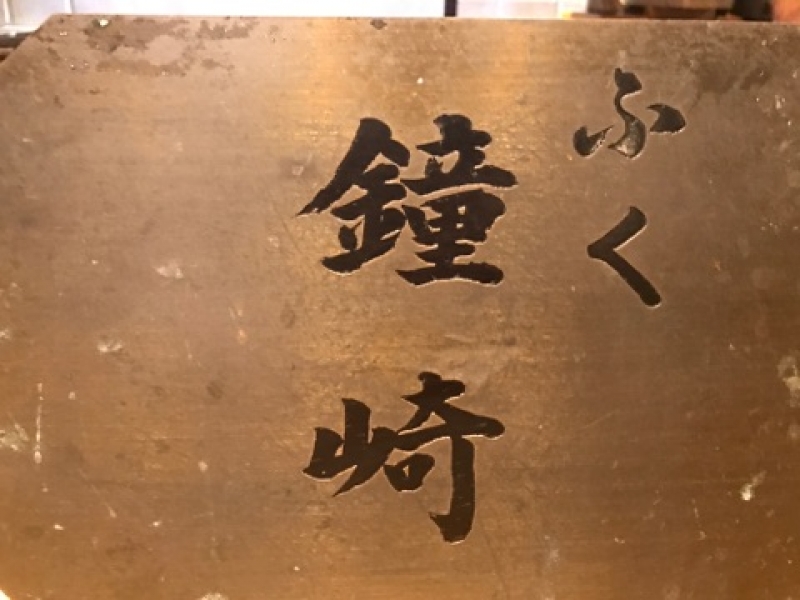 ふく
鐘崎